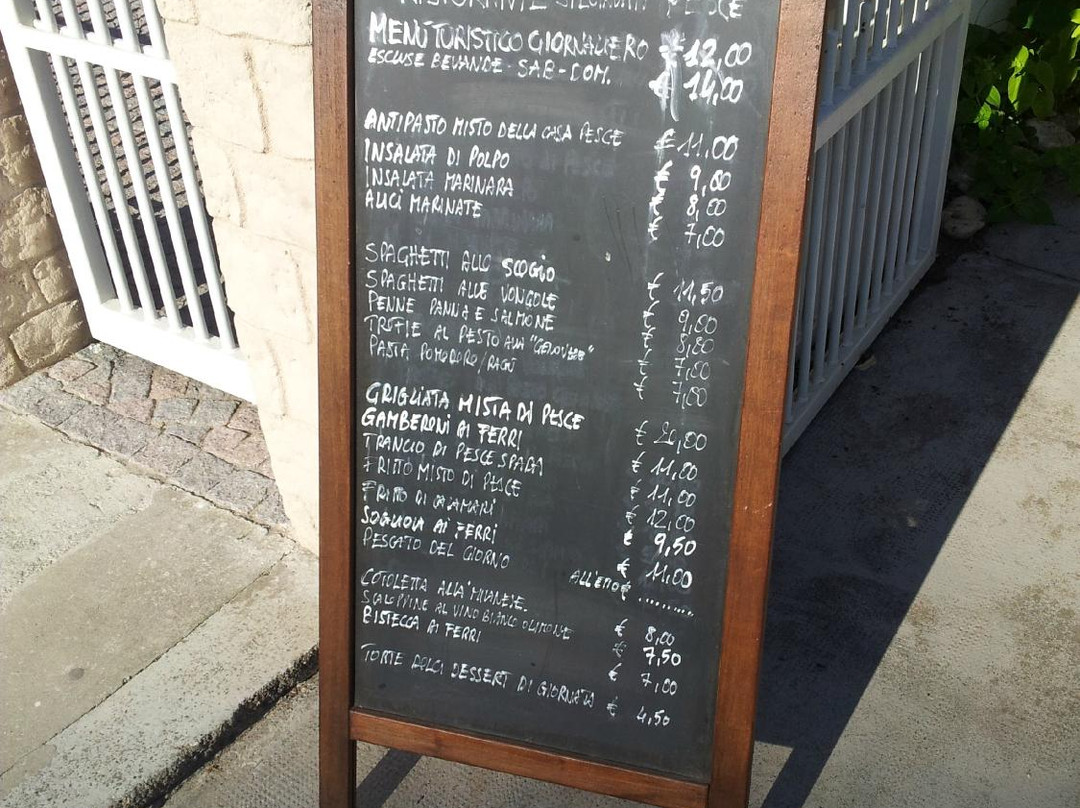 RISTORANTE SPECIALITÀ PESCE
MENÚ TURISTICO GIORNALIERO € 12,00
ESCLUSE BEVANDE - SAB - DOM. € 14,00
ANTIPASTO MISTO DELLA CASA PESCE € 11,00
INSALATA DI POLPO € 9,00
INSALATA MARINARA € 8,00
ALICI MARINATE € 7,00
SPAGHETTI ALLO SCOGIO € 11,50
SPAGHETTI ALLE VONGOLE € 9,80
PENNE PANNA E SALMONE € 8,80
TROFIE AL PESTO ALLA "GENOVESE" € 7,50
PASTA POMODORO/RAGÙ € 7,00
GRIGLIATA MISTA DI PESCE € 20,00
GAMBERONI AI FERRI € 11,00
TRANCIO DI PESCE SPADA € 11,00
FRITTO MISTO DI PESCE € 12,00
FRITTO DI CALAMARI € 9,50
SOGLIOLA AI FERRI € 11,00
PESCATO DEL GIORNO ALL'ETTO € ..........
COTOLETTA ALLA MILANESE. € 8,00
SCALOPPINE AL VINO BIANCO O LIMONE € 7,50
BISTECCA AI FERRI € 7,00
TORTE DOLCI DESSERT DI GIORNATA € 4,50